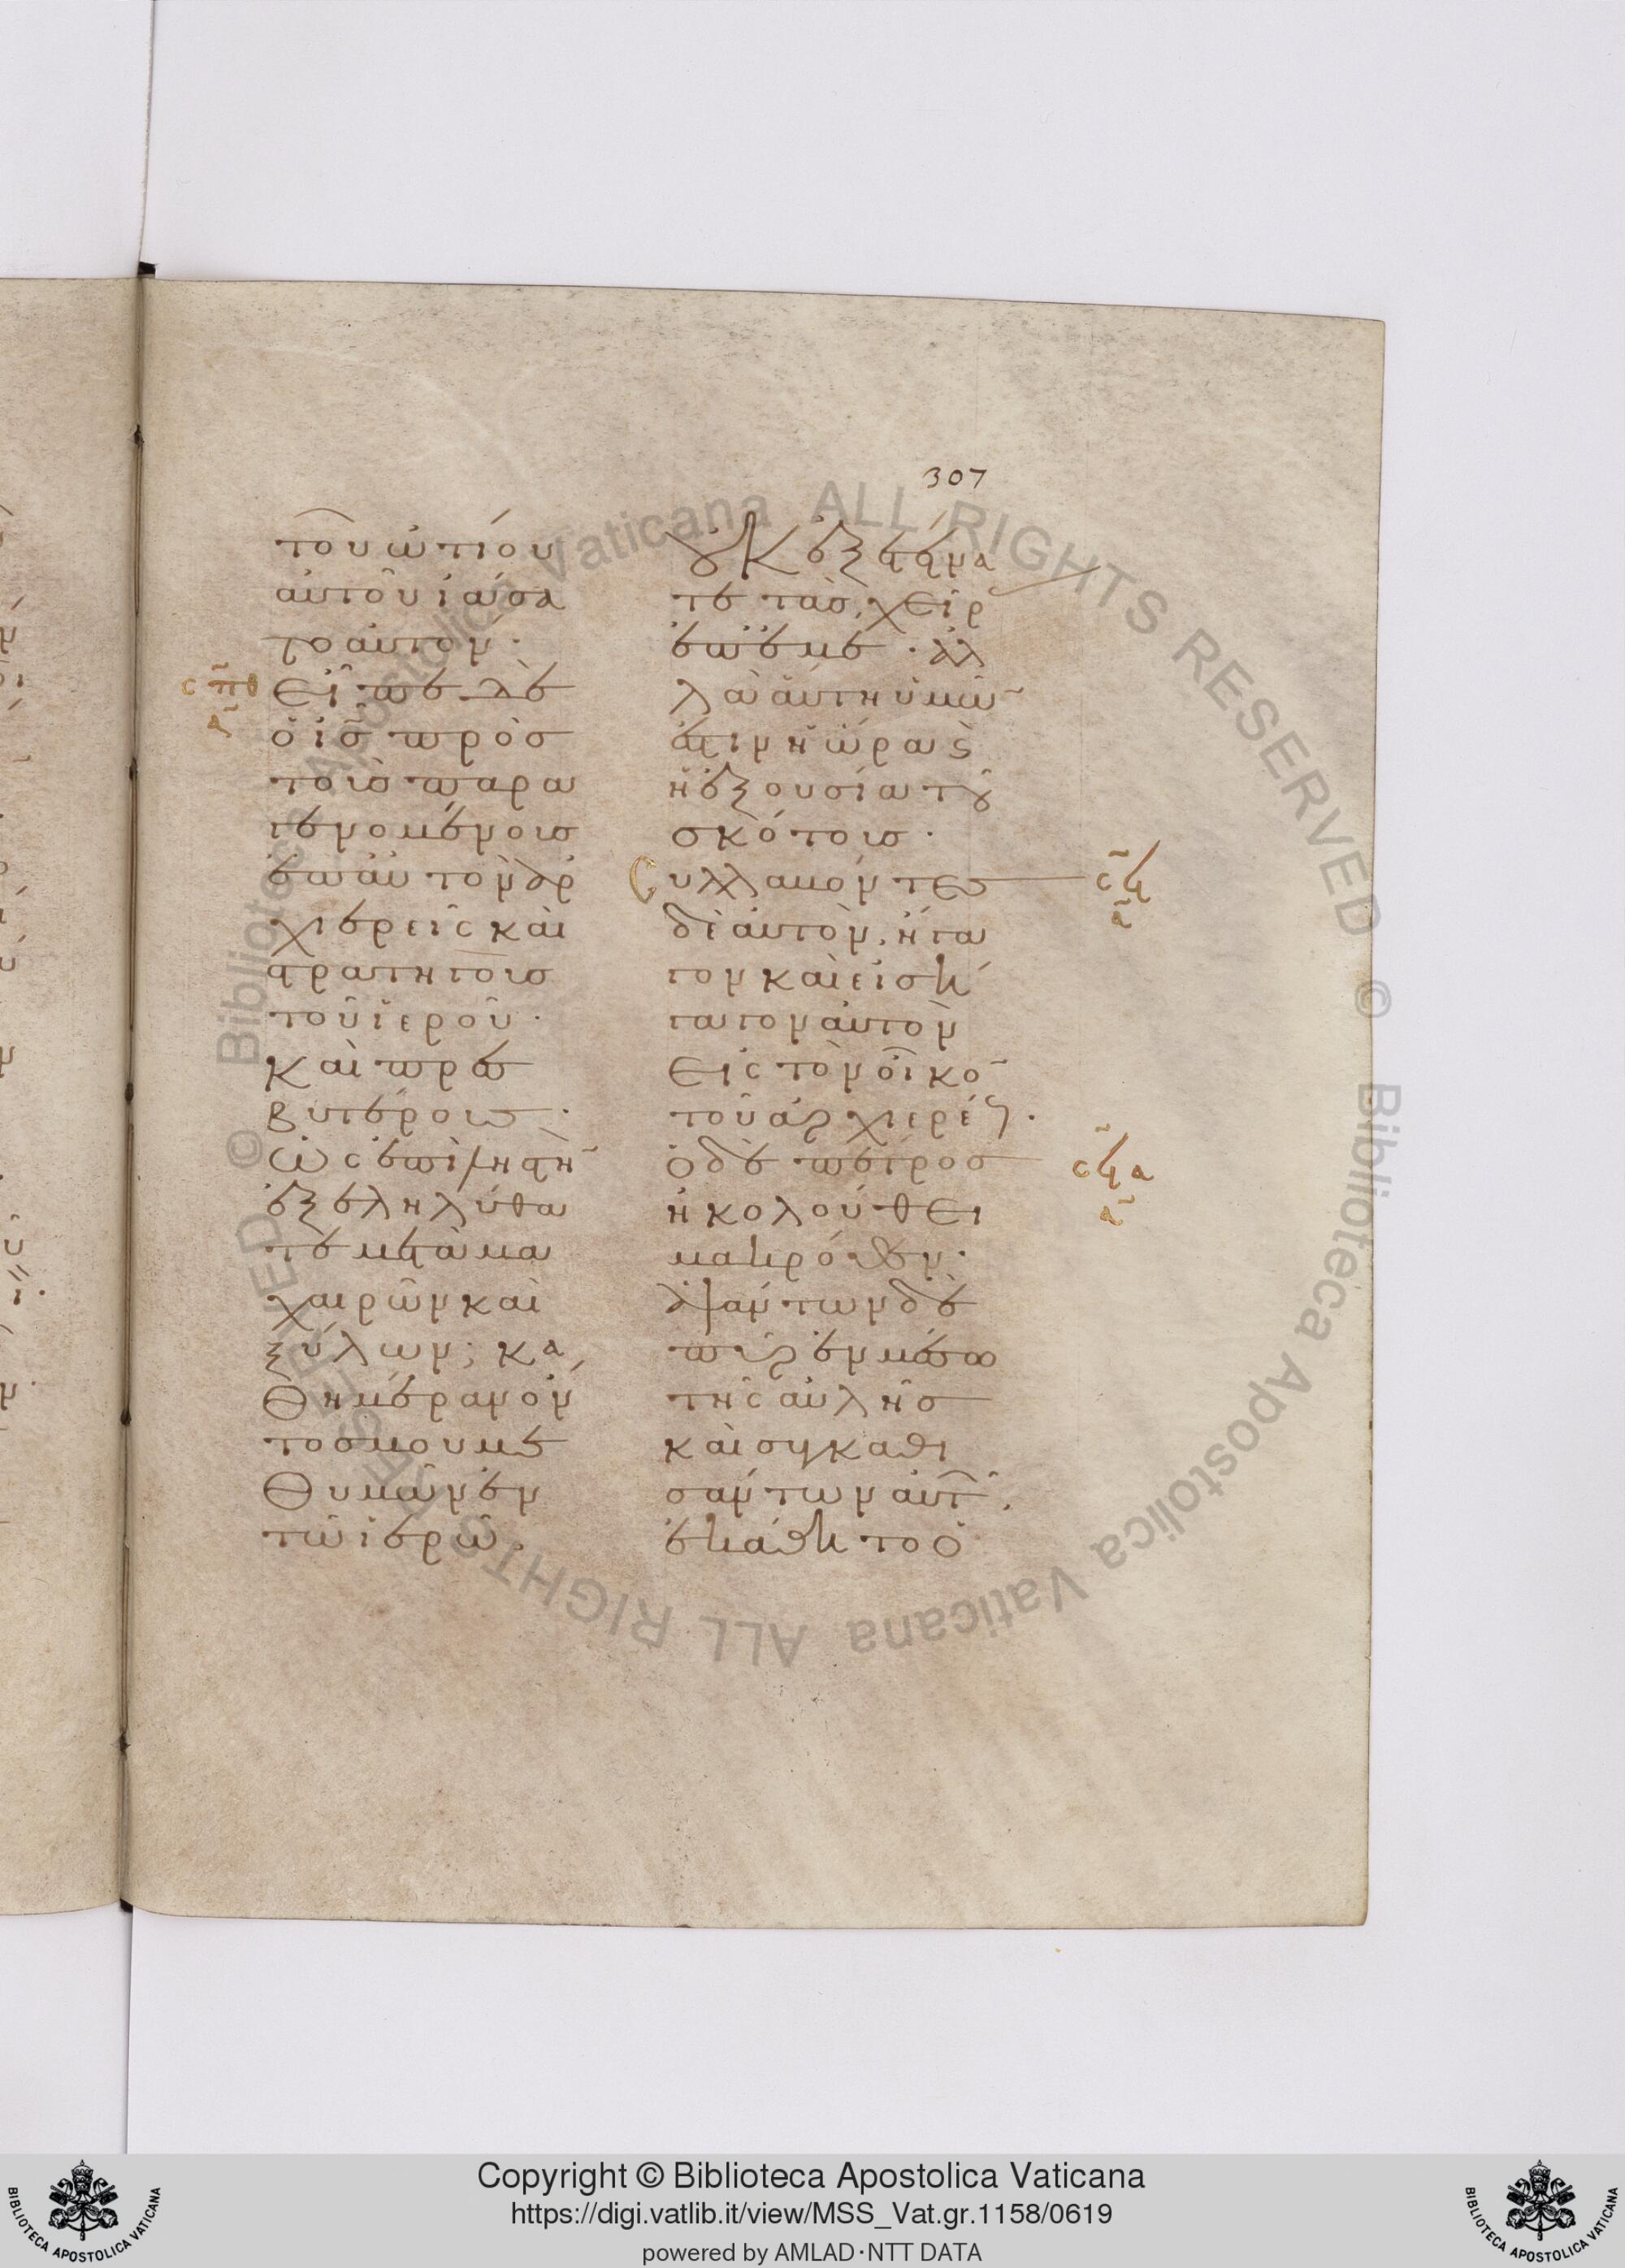 307
τοῦ ὠτίου
αὐτοῦ ἰάσα
το αὐτόν·
σπθ Εἶπε δὲ
α
ὁ ις̅ πρὸσ
τοὺσ παρα
γενομένουσ
ἐπ αὐτὸν ἀρ
χιερεῖς καὶ
στρατηγοὺσ
τοῦ ἱεροῦ·
καὶ πρεσ
βυτέρουσ·
Ὡς ἐπὶ ληστὴ̅
ἐξεληλύθα
τε μετὰ μα
χαιρῶν καὶ
ξύλων; κα
θημέραν ὄν
τοσ μου με
θυμῶν ἐν
τῶ ἱερῶ·
οὐκ ἐξετείνα
τε τὰσ χεῖρ
ἐπ ἐμέ· ἀλ
λ αὕτη ὑμῶ̅
ἐστιν ἡ ὥρα καὶ
ἡ ἐξουσία τοῦ
σκότουσ·
Συλλαβόντεσ σϟ
α
δὲ αὐτὸν, ἤγα
γον καὶ εἰσή
γαγον αὐτὸν
Εἰς τὸν οἶκο̅
τοῦ ἀρχιερέως·
ὁ δὲ πέτροσ σϟα
α
ἠκολούθει
μακρόθεν·
ἁψάντων δὲ
πῦρ ἐν μέσω
τῆς αὐλῆσ
καὶ συγκαθι
σάντων αὐτῶν,
ἐκάθητο ὁ
Copyright © Biblioteca Apostolica Vaticana
https://digi.vatlib.it/view/MSS_Vat.gr.1158/0619
powered by AMLAD·NTT DATA
BIBLIOTECA APOSTOLICA VATICANA
BIBLIOTECA APOSTOLICA VATICANA
© Biblioteca Apostolica Vaticana ALL RIGHTS RESERVED © Biblioteca Apostolica Vaticana ALL RIGHTS RESERVED